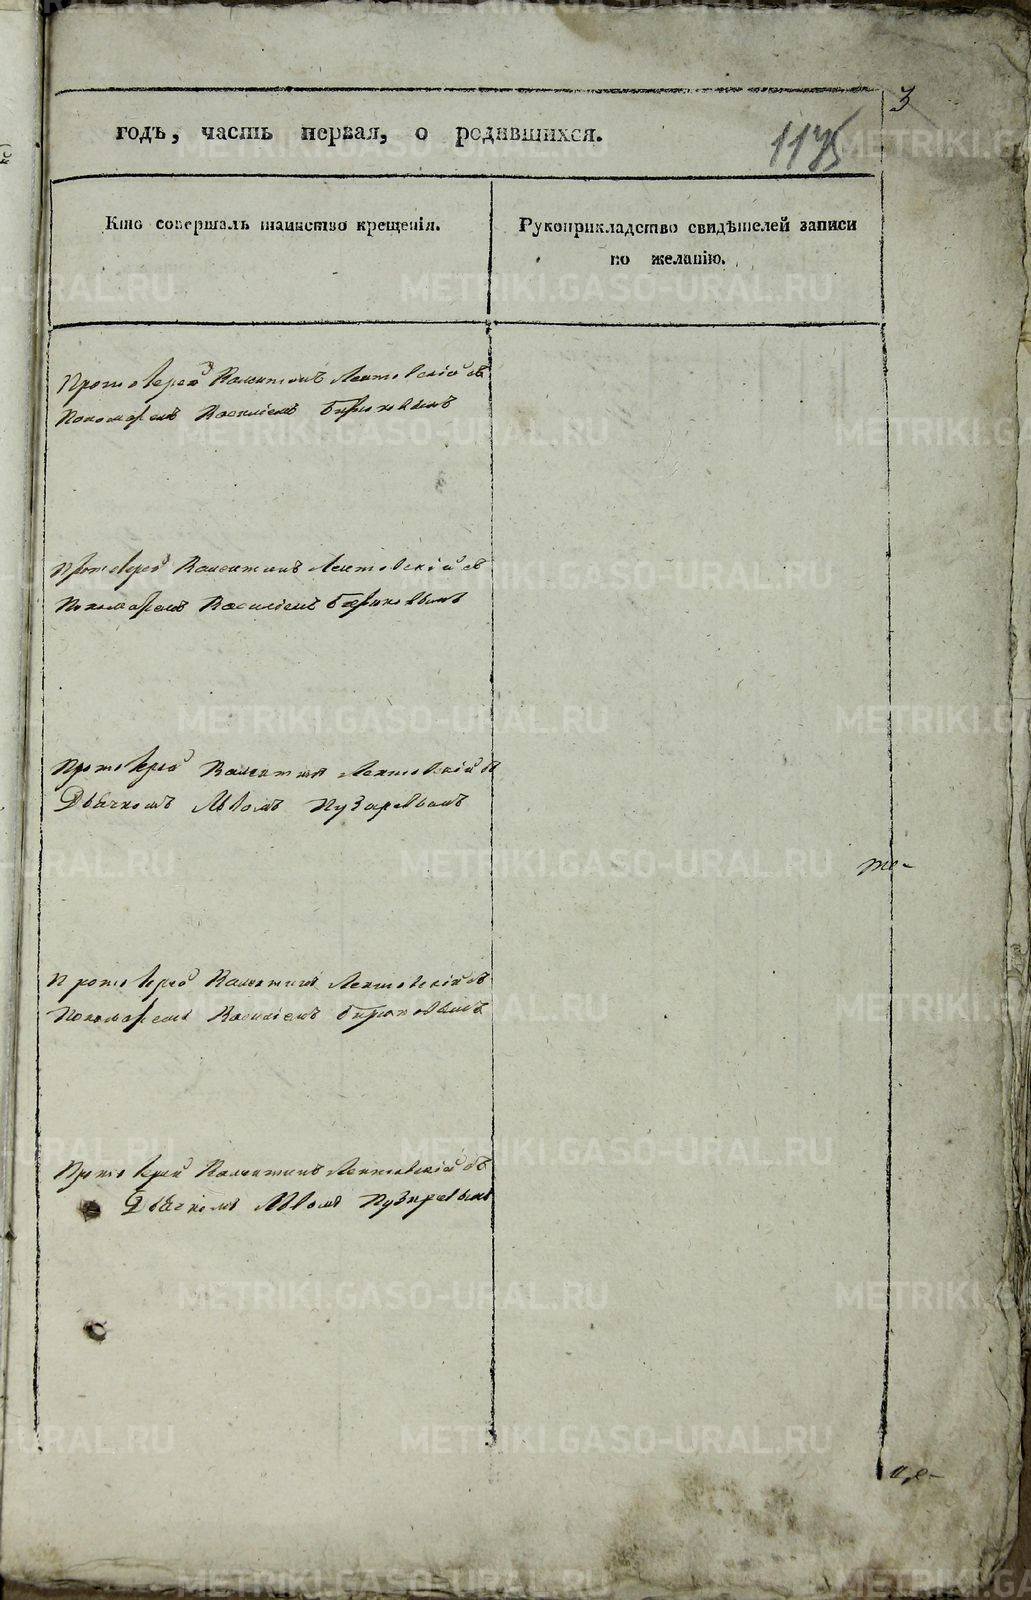 3
годъ, часть первая, о родившихся.
1175
Кто совершалъ таинство крещенія.
Рукоприкладство свидѣтелей записи
по желанію.
Протоіерей Валентинъ Лентовскій съ
Пономаремъ Василіемъ Бирюковымъ
Протоіерей Валентинъ Лентовскій съ
Пономаремъ Василіемъ Бирюковымъ
Протоіерей Валентинъ Лентовскій съ
Дьячкомъ Львомъ Пузыревымъ
Протоіерей Валентинъ Лентовскій съ
Пономаремъ Василіемъ Бирюковымъ
Протоіерей Валентинъ Лентовскій съ
Дьячкомъ Львомъ Пузыревымъ
METRIKI.GASO-URAL.RU